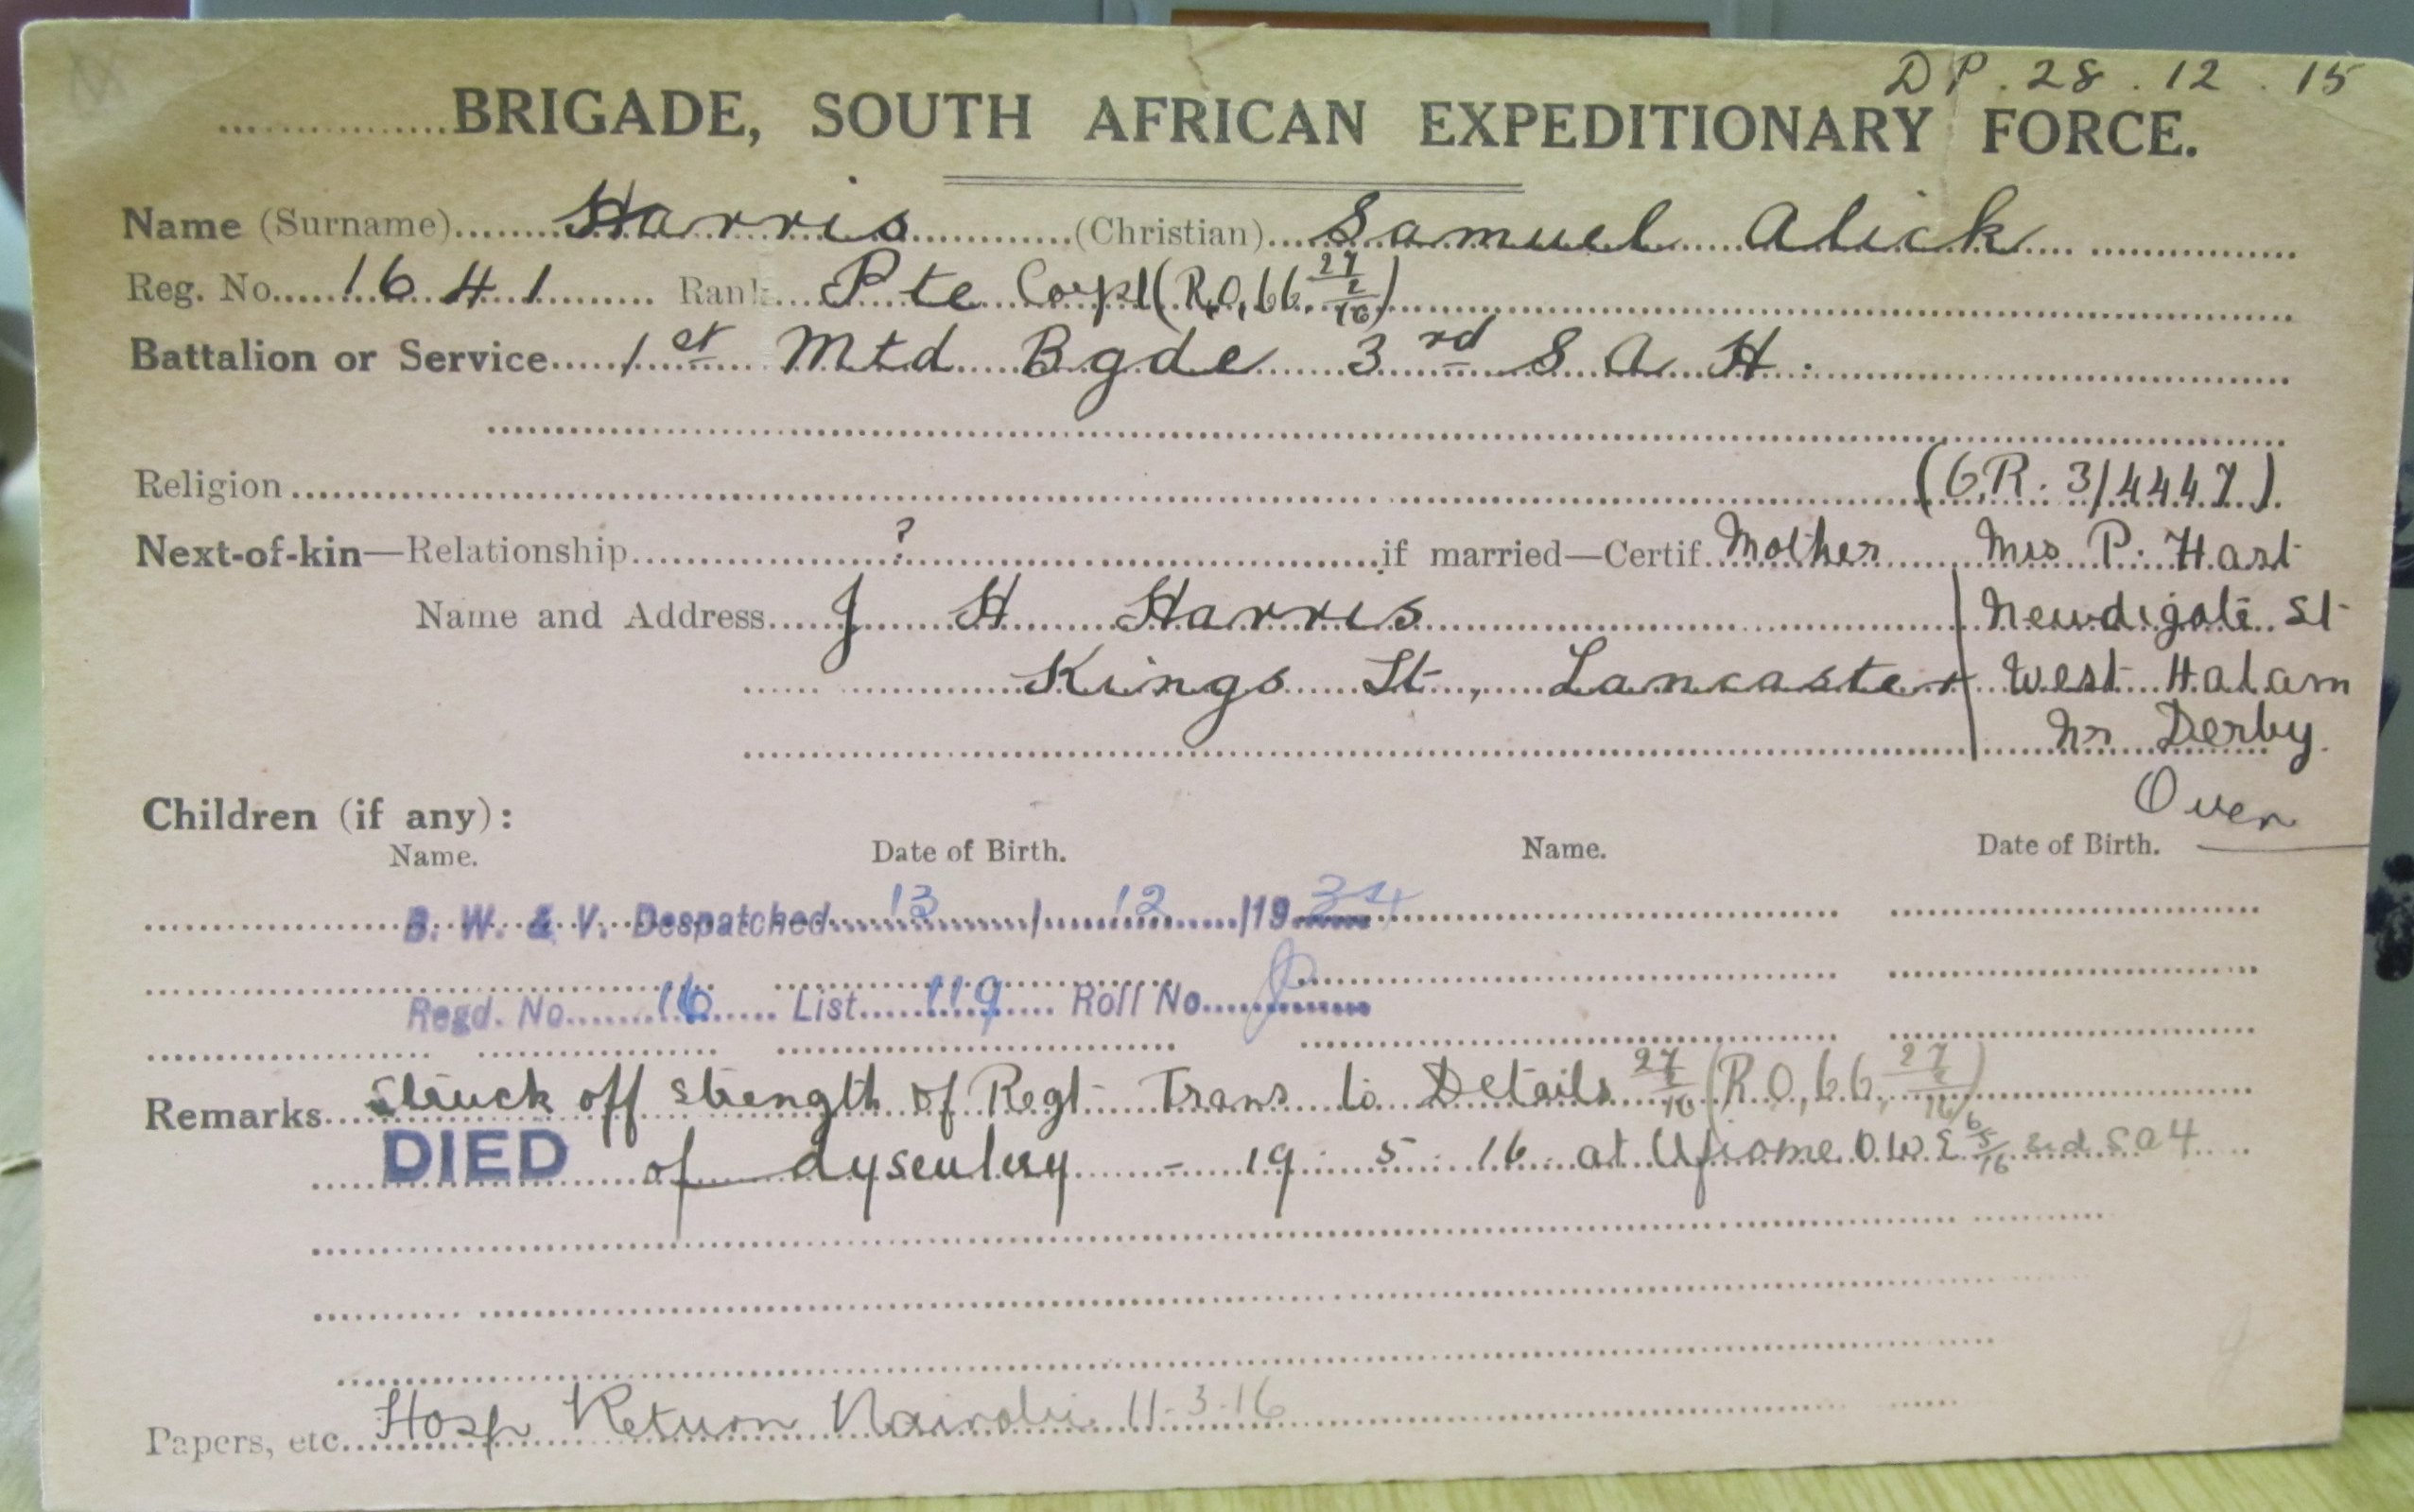 DP. 28. 12. 15
BRIGADE, SOUTH AFRICAN EXPEDITIONARY FORCE.
Name (Surname) Harris (Christian) Samuel Alick
Reg. No. 1641 Rank Pte Corpl (R.O, 66. 27/2/16)
Battalion or Service 1st Mtd Bgde 3rd S A H.
Religion (GR. 3/4447).
Next-of-kin—Relationship ? if married—Certif. Mother Mrs P. Hart
Name and Address J H Harris Newdigate St
Kings St, Lancaster West Halam
Nr Derby.
Over
Children (if any):
Name. Date of Birth. Name. Date of Birth.
B. W. & V. Despatched 13/12/1934
Regd. No. 16 List 119 Roll No.
Remarks Struck off strength of Regt Trans to Details 27/2/16 (R.O, 66, 27/2/16)
DIED of dysentery - 19. 5. 16 at Ufiome O.W.E 6/5/16
Papers, etc. Hosp Return Nairobi 11-3-16